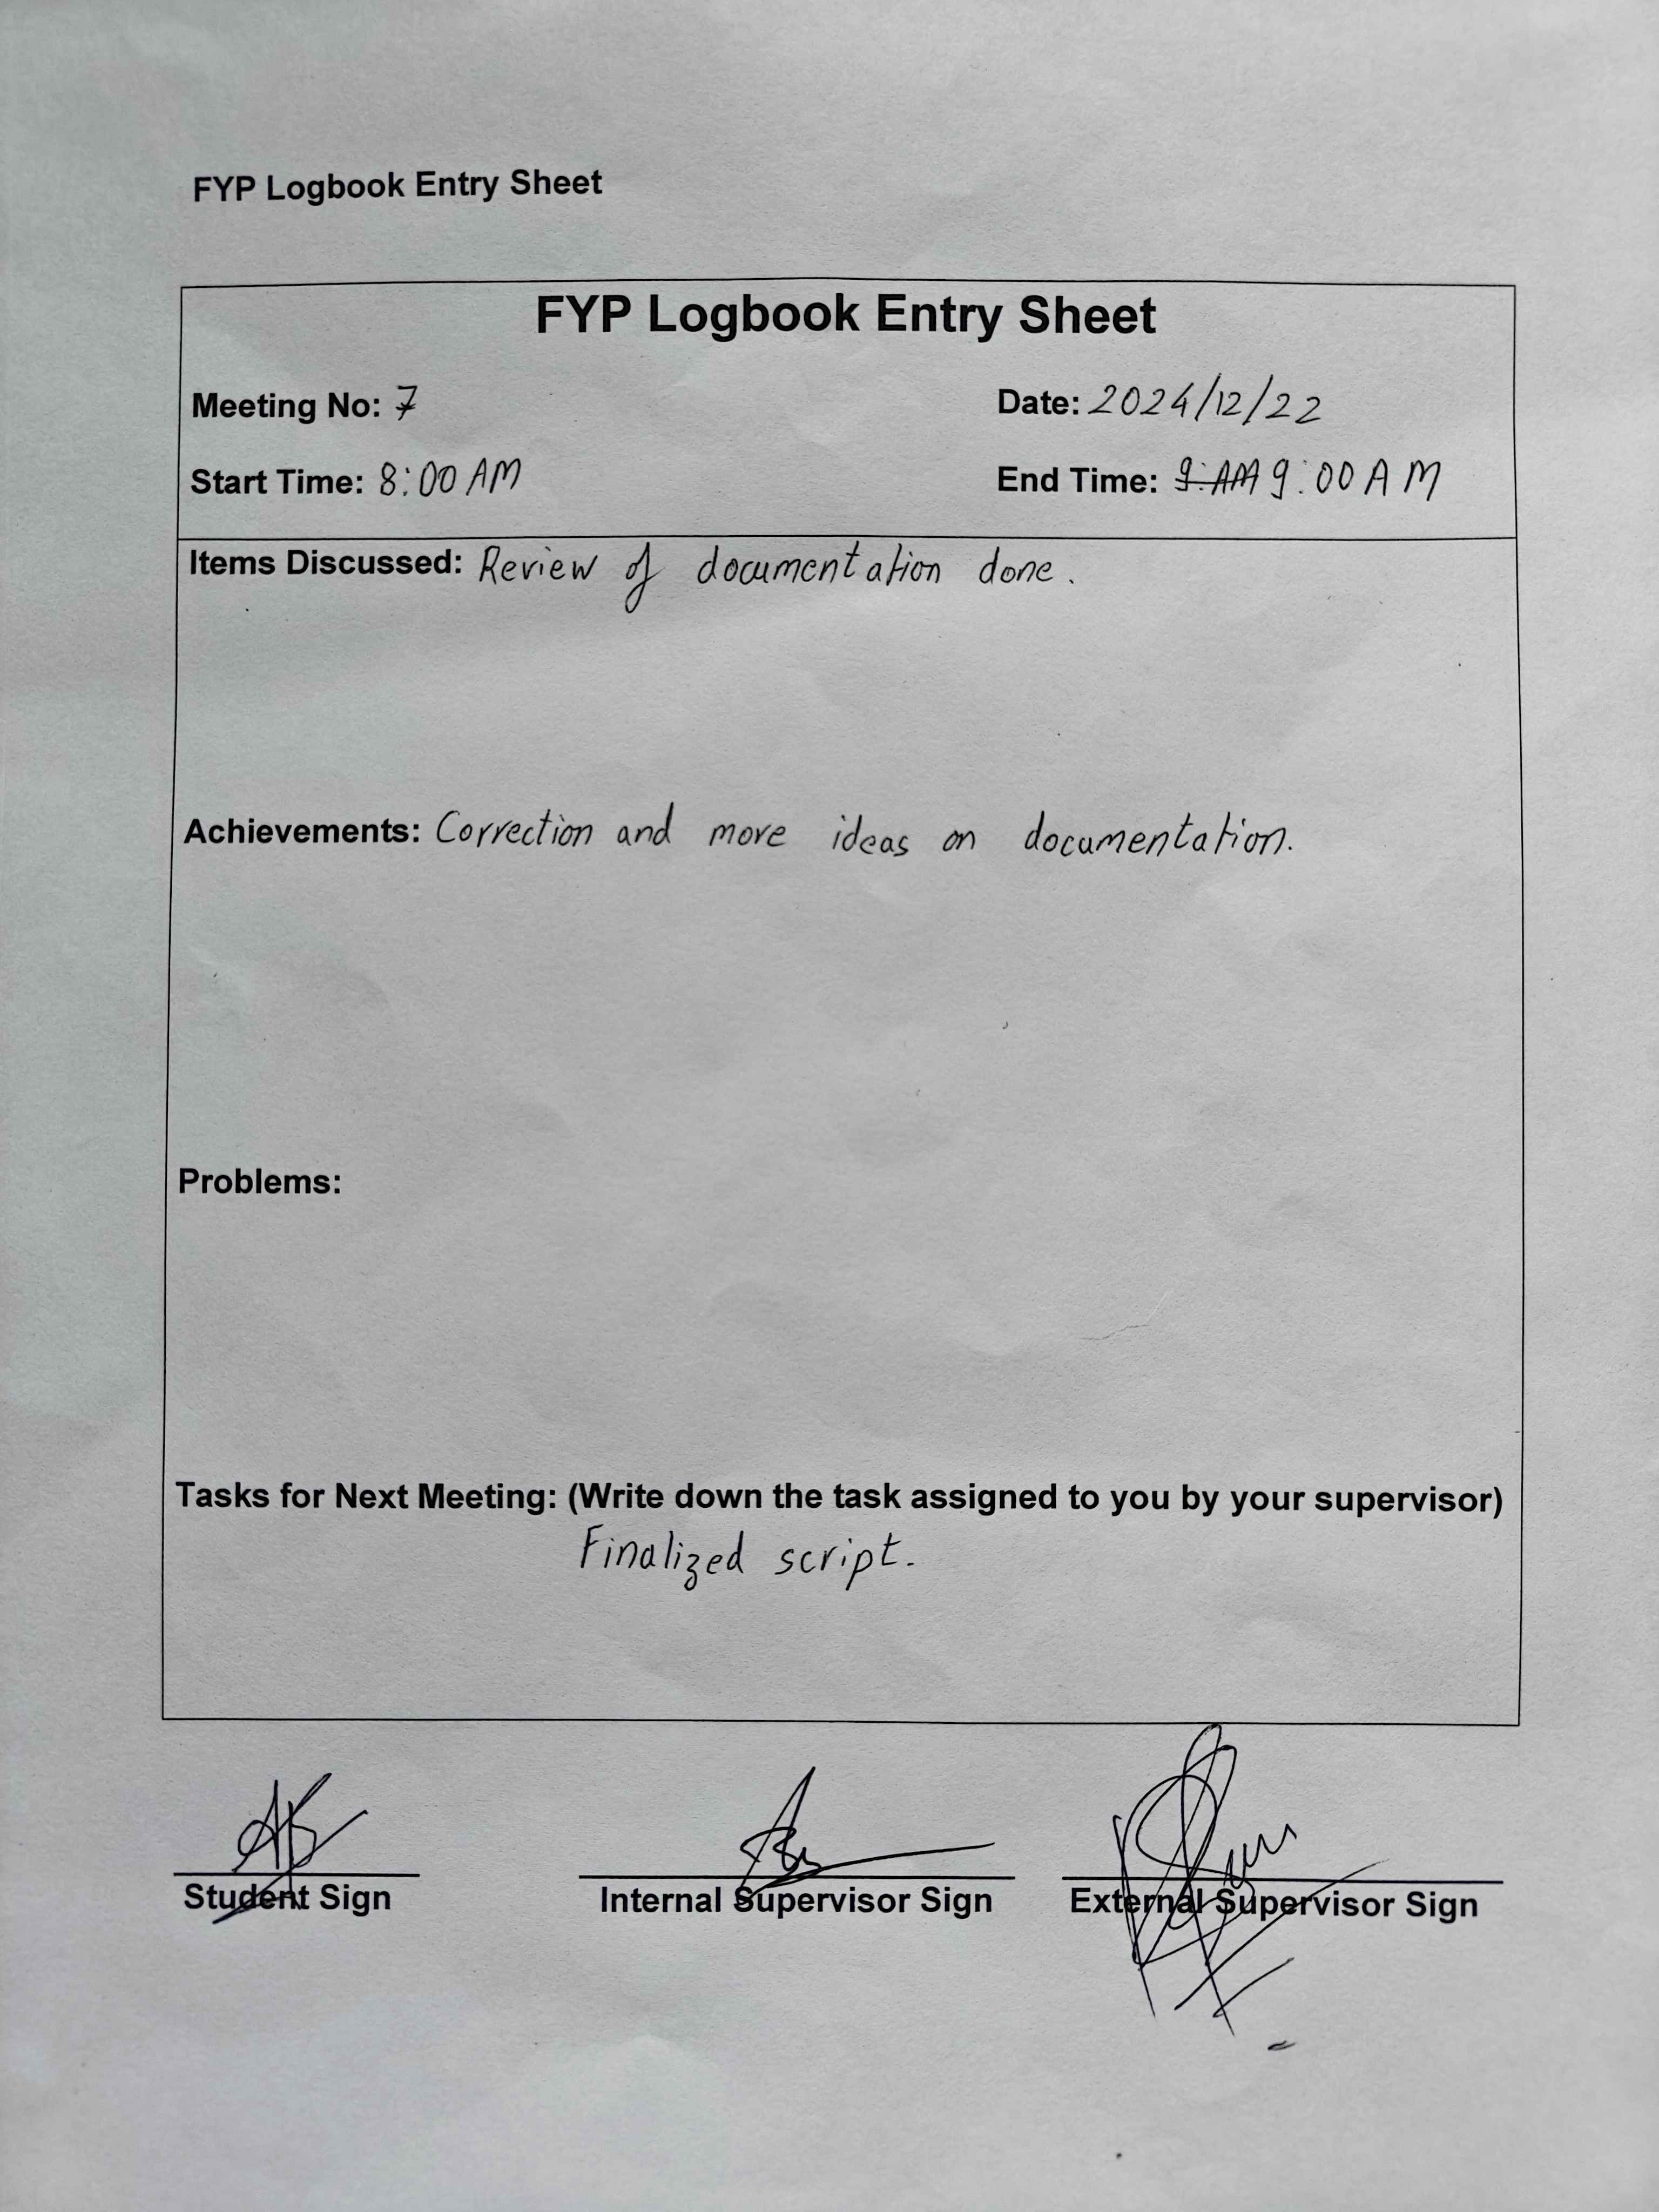 FYP Logbook Entry Sheet
FYP Logbook Entry Sheet
Meeting No: 7 Date: 2024/12/22
Start Time: 8:00 AM End Time: 9:AM 9:00 AM
Items Discussed: Review of documentation done.
Achievements: Correction and more ideas on documentation.
Problems:
Tasks for Next Meeting: (Write down the task assigned to you by your supervisor)
Finalized script.
Student Sign Internal Supervisor Sign External Supervisor Sign